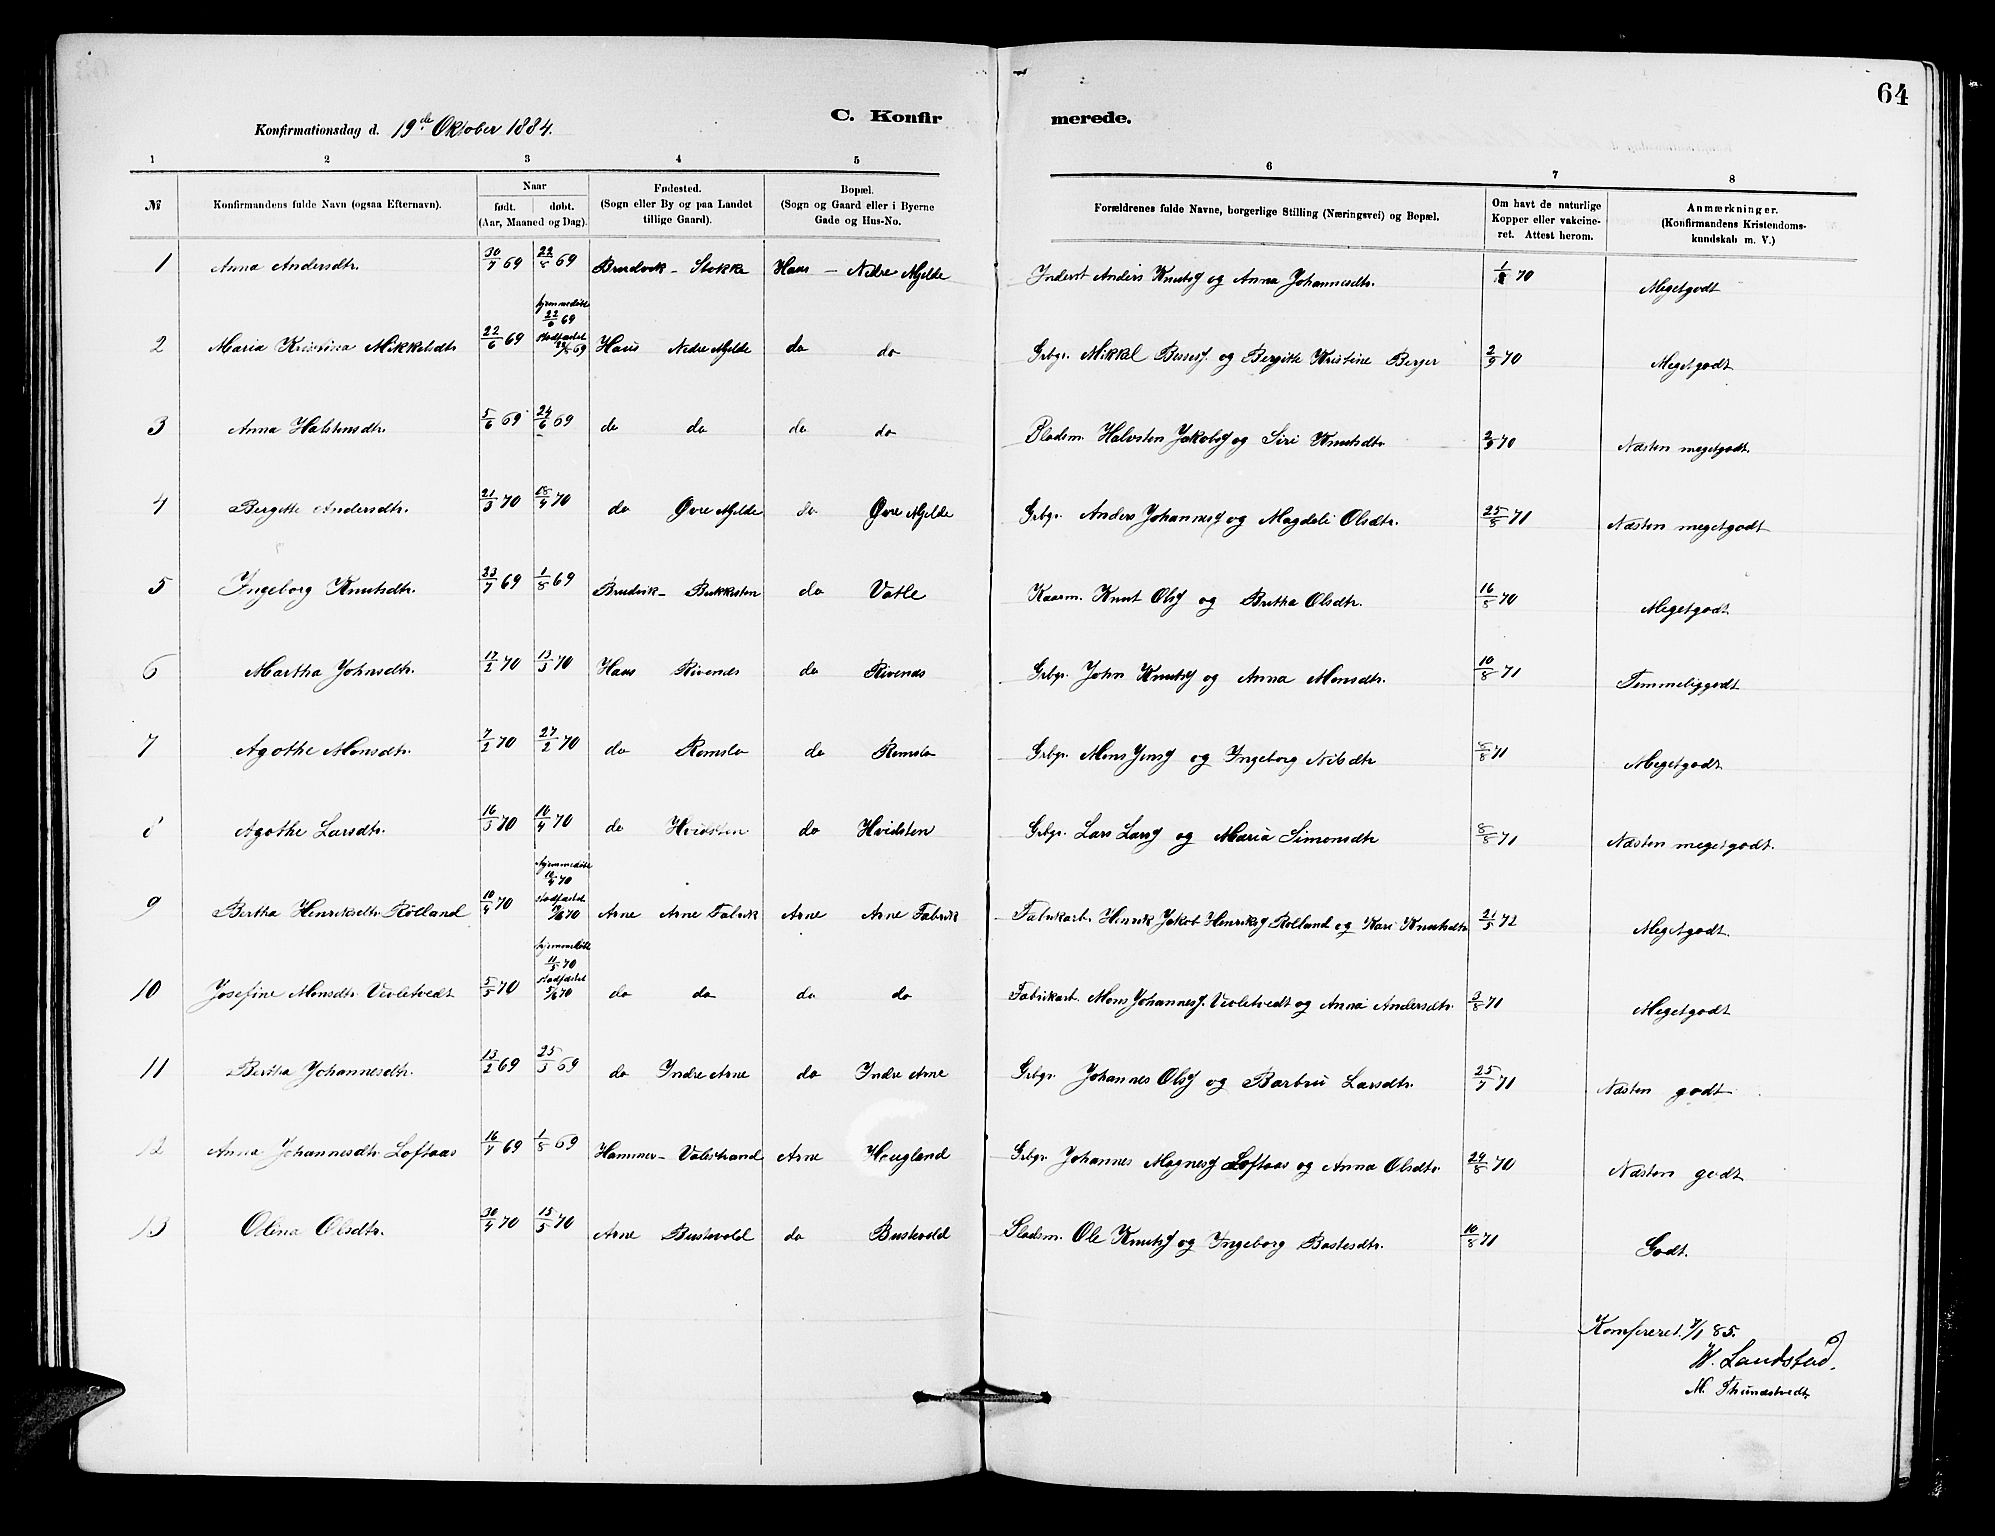 64
C. Konfirmerede.
Konfirmationsdag d. 19de Oktober 1884.
1 2 3 4 5 6 7 8
№ Konfirmandens fulde Navn (ogsaa Efternavn). Naar født. døbt. (Aar, Maaned og Dag). Fødested. (Sogn eller By og paa Landet tillige Gaard). Bopæl. (Sogn og Gaard eller i Byerne Gade og Hus-No. Forældrenes fulde Navne, borgerlige Stilling (Næringsvei) og Bopæl. Om havt de naturlige Kopper eller vakcineret. Attest herom. Anmærkninger. (Konfirmandens Kristendomskundskab m. V.)
1 Anna Andersdtr. 30/7 69 22/8 69 Bruvik – Stokke Haus – Nedre Mjelde Inderst Anders Knuts. og Anna Johannesdtr. 70 Megetgodt
2 Maria Kristina Mikkelsdtr 22/6 69 hjemmedøbt 22/6 69 stadfæstet 69 Haus Nedre Mjelde do do Grbgr. Mikkel og Bergitte Kristine Berger 2/9 70 Megetgodt
3 Anna Halstensdtr. 5/6 69 24/6 69 do do do do Pladsm. Halvsten Jakobs. og Siri Knutsdtr 2/9 70 Næsten megetgodt.
4 Bergitte Andersdtr. 21/3 70 18/4 70 do Øvre Mjelde do Øvre Mjelde Grbgr. Anders Johannes. og Magdeli Olsdtr. 25/5 71 Næsten megetgodt
5 Ingeborg Knutsdtr. 23/7 69 1/8 69 Bruvik – Bukkesten do Vatle Kaarm. Knut Ols. og Britha Olsdtr. 16/5 70 Megetgodt
6 Martha Johnsdtr. 17/2 70 13/3 70 Haus Rivenes do Rivenes Grbgr. John Knuts. og Anna Monsdtr. 10/8 71 Temmeliggodt
7 Agathe Monsdtr. 7/2 70 27/2 70 do Romslo do Romslo Grbgr. Mons Jens. og Ingeborg Nilsdtr 8/8 71 Megetgodt
8 Agathe Larsdtr. 16/3 70 10/4 70 do Hvidsten do Hvidsten Grbgr. Lars Lars. og Maria Simonsdtr 8/8 71 Næsten megetgodt.
9 Bertha Henriksdtr. Rolland 10/4 70 hjemmedøbt 70 stadfæstet 70 Arne Arne Fabrik Arne Arne Fabrik Fabrikarb. Henrik Jakob Henriks. Rolland og Kari Knutsdtr 21/5 72 Megetgodt.
10 Josefine Monsdtr. Veoletvedt 5/5 70 hjemmedøbt 11/5 70 stadfæstet 5/6 70 do do do do Fabrikarb. Mons Johannes. Veoletvedt og Anna Andersdtr. 3/8 71 Megetgodt
11 Bertha Johannesdtr. 13/2 69 25/3 69 do Indre Arne do Indre Arne Grbgr. Johannes Ols. og Barbru Larsdtr. 25/7 71 Næsten godt
12 Anna Johannesdtr. Loftaas 16/7 69 1/8 69 Hammer – Valestrand Arne Hougland Grbgr. Johannes Magnes. Loftaas og Anna Olsdtr. 24/8 70 Næsten godt
13 Olina Olsdtr. 30/4 70 15/5 70 Arne Bustevold do Bustevold Pladsm. Ole Knuts. og Ingeborg Bastesdtr. 10/8 71 Godt.
Konfereret. 7/1 85.
W. Landstad.
M. Thunestvedt